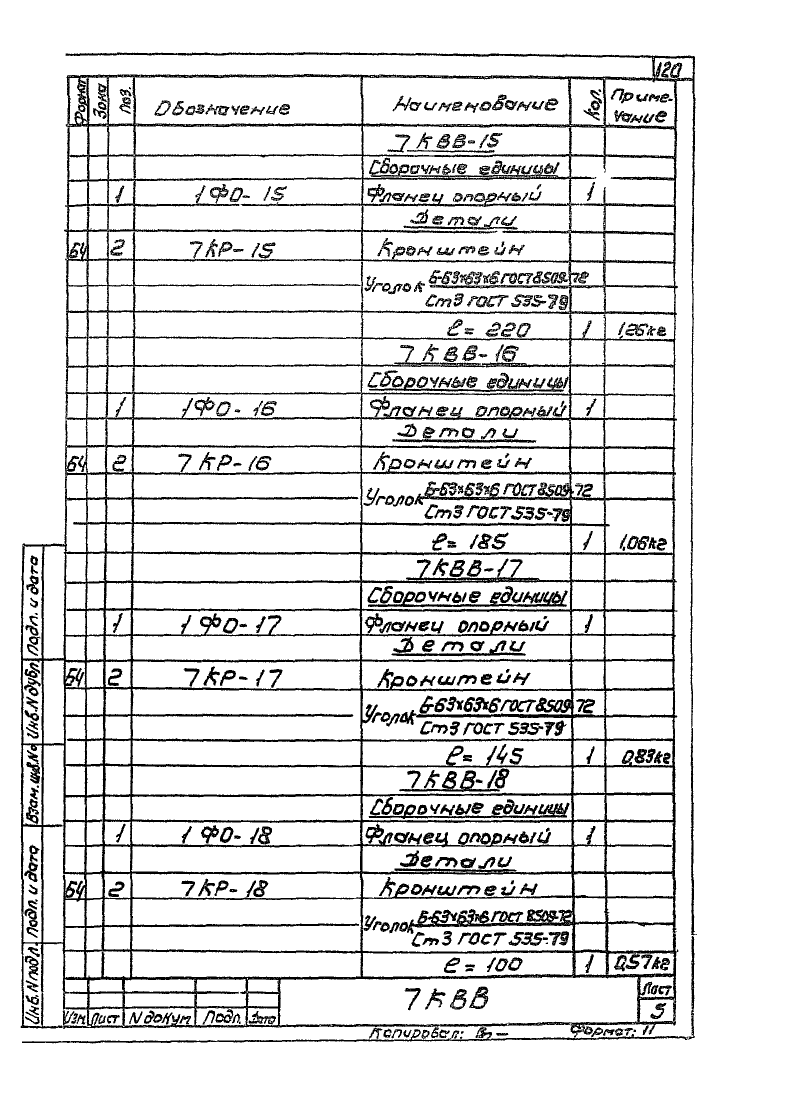 120
Формат Зона Поз. Обозначение Наименование Кол. Приме-
чание
7КВВ-15
Сборочные единицы
1 1ФО-15 Фланец опорный 1
Детали
БЧ 2 7КР-15 Кронштейн
Уголок Б-63х63х6 ГОСТ 8509-72
Ст3 ГОСТ 535-79
ℓ=220 1 1,26кг
7КВВ-16
Сборочные единицы
1 1ФО-16 Фланец опорный 1
Детали
БЧ 2 7КР-16 Кронштейн
Уголок Б-63х63х6 ГОСТ 8509-72
Ст3 ГОСТ 535-79
ℓ=185 1 1,06кг
7КВВ-17
Сборочные единицы
1 1ФО-17 Фланец опорный 1
Детали
БЧ 2 7КР-17 Кронштейн
Уголок Б-63х63х6 ГОСТ 8509-72
Ст3 ГОСТ 535-79
ℓ=145 1 0,83кг
7КВВ-18
Сборочные единицы
1 1ФО-18 Фланец опорный 1
Детали
БЧ 2 7КР-18 Кронштейн
Уголок Б-63х63х6 ГОСТ 8509-72
Ст3 ГОСТ 535-79
ℓ=100 1 0,57кг
Инв.Nподл. Подп. и дата Взам.инв.Nо Инв.Nдубл Подп. и дата
7КВВ
Лист
5
Изм Лист N докум Подп. Дата
Копировал: Формат: 11